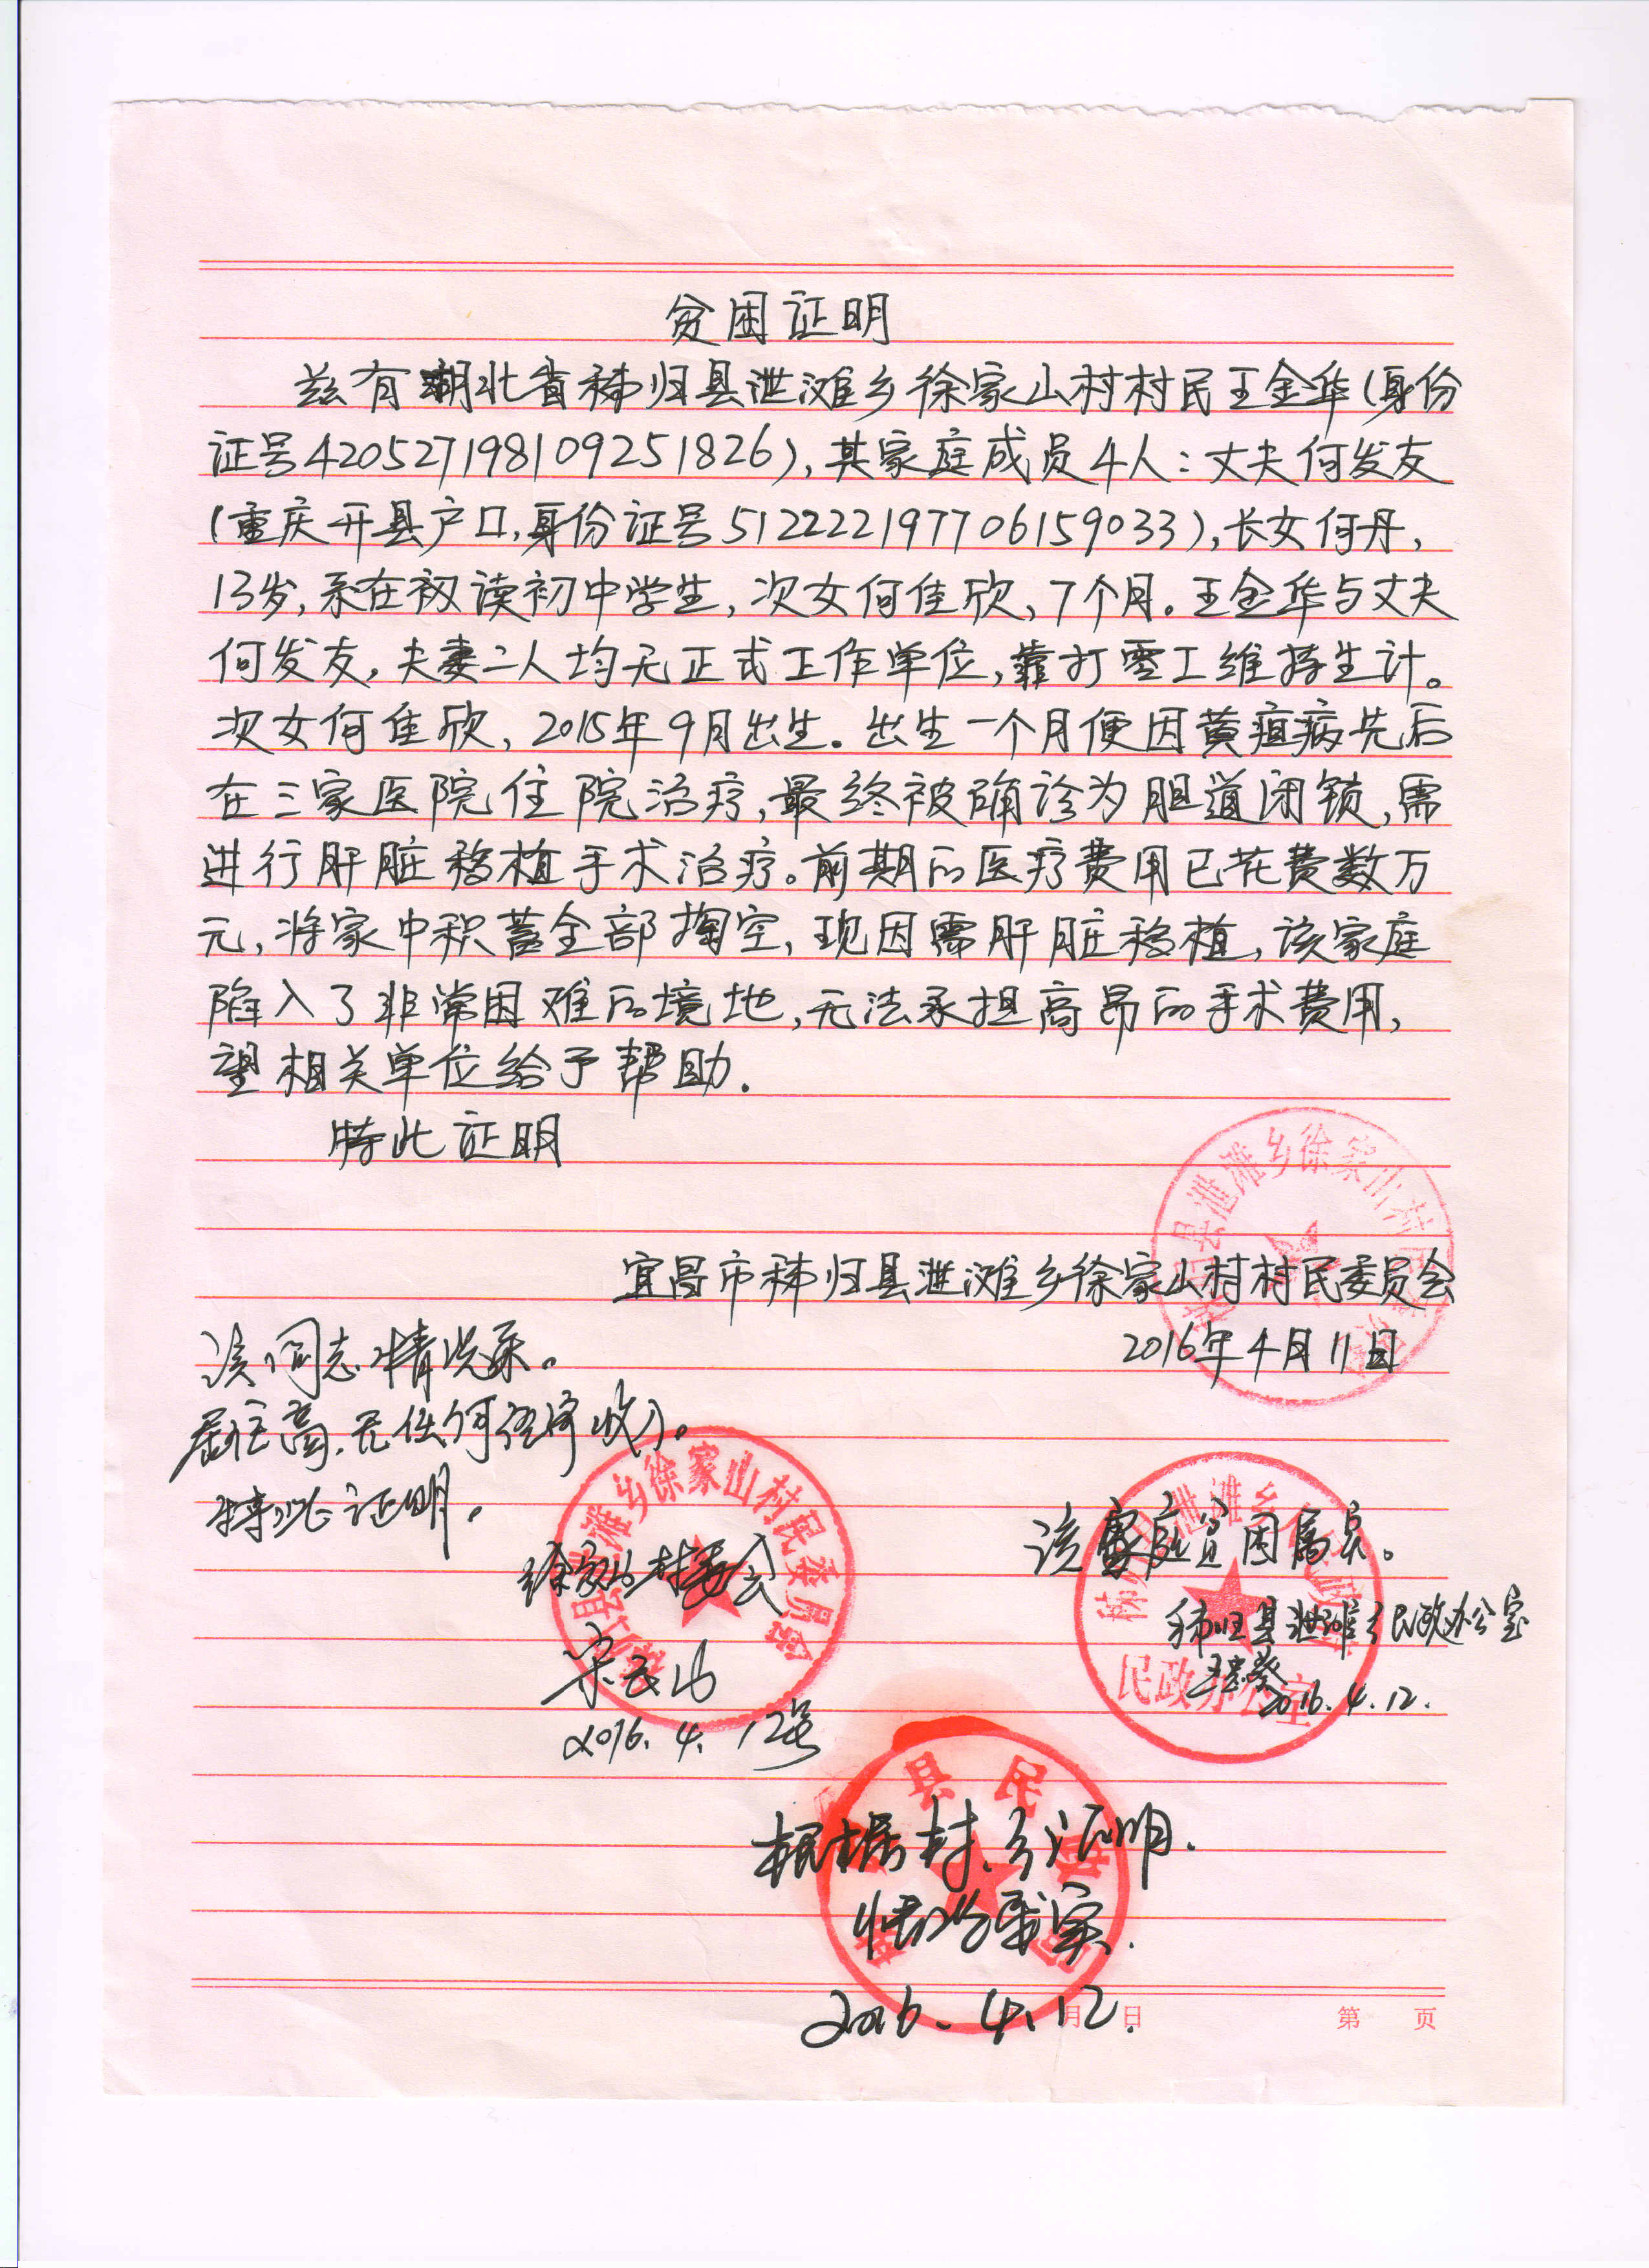 贫困证明
兹有湖北省秭归县泄滩乡徐家山村村民王金华(身份
证号420527198109251826),其家庭成员4人:丈夫何发友
(重庆开县户口,身份证号512222197706159033),长女何丹,
13岁,系在初读初中学生,次女何佳欣,7个月。王金华与丈夫
何发友,夫妻二人均无正式工作单位,靠打零工维持生计。
次女何佳欣,2015年9月出生。出生一个月便因黄疸病先后
在三家医院住院治疗,最终被确诊为胆道闭锁,需
进行肝脏移植手术治疗。前期的医疗费用已花费数万
元,将家中积蓄全部掏空,现因需肝脏移植,该家庭
陷入了非常困难的境地,无法承担高昂的手术费用,
望相关单位给予帮助.
特此证明
宜昌市秭归县泄滩乡徐家山村村民委员会
2016年4月11日
秭归县泄滩乡徐家山村民委员会
该同志情况属。
居住高,无任何经济收入。
特此证明。
徐家山村委会
2016.4.12号
秭归县泄滩乡徐家山村民委员会
该家庭贫困属实。
秭归县泄滩乡民政办公室
2016.4.12.
秭归县泄滩乡人民政府
民政办公室
根据村、乡证明.
情况属实.
2016.4.12.
县民政局
月 日
第 页